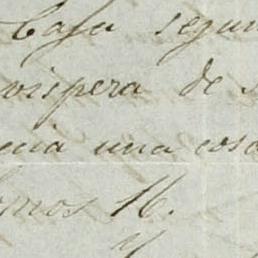 Casa segun
vispera de s
enia una cosa
mos 16.
y